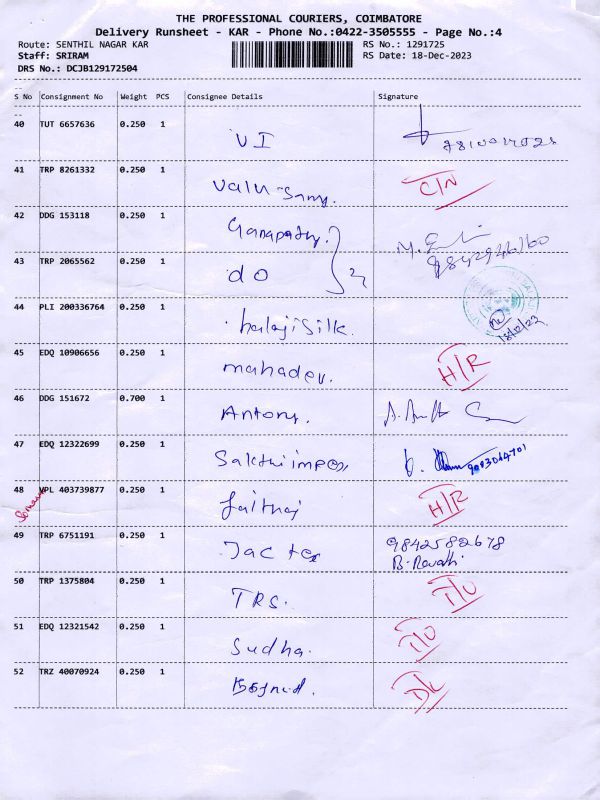 THE PROFESSIONAL COURIERS, COIMBATORE
Delivery Runsheet - KAR - Phone No.:0422-3505555 - Page No.:4
Route: SENTHIL NAGAR KAR RS No.: 1291725
Staff: SRIRAM RS Date: 18-Dec-2023
DRS No.: DCJB129172504
S No Consignment No Weight PCS Consignee Details Signature
40 TUT 6657636 0.250 1 VI
41 TRP 8261332 0.250 1 Valu Samy. C/N
42 DDG 153118 0.250 1 Ganapathy.
9842946160
43 TRP 2065562 0.250 1 do
44 PLI 200336764 0.250 1 balaji silk. 18/12/23
45 EDQ 10906656 0.250 1 mahadev. H/R
46 DDG 151672 0.700 1 Antony.
47 EDQ 12322699 0.250 1 Sakthi impex 9003064701
48 VPL 403739877 0.250 1 H/R
49 TRP 6751191 0.250 1 Jac tex 9842582678
B. Revathi
50 TRP 1375804 0.250 1 TRS. I/O
51 EDQ 12321542 0.250 1 Sudha. I/O
52 TRZ 40070924 0.250 1 D/L